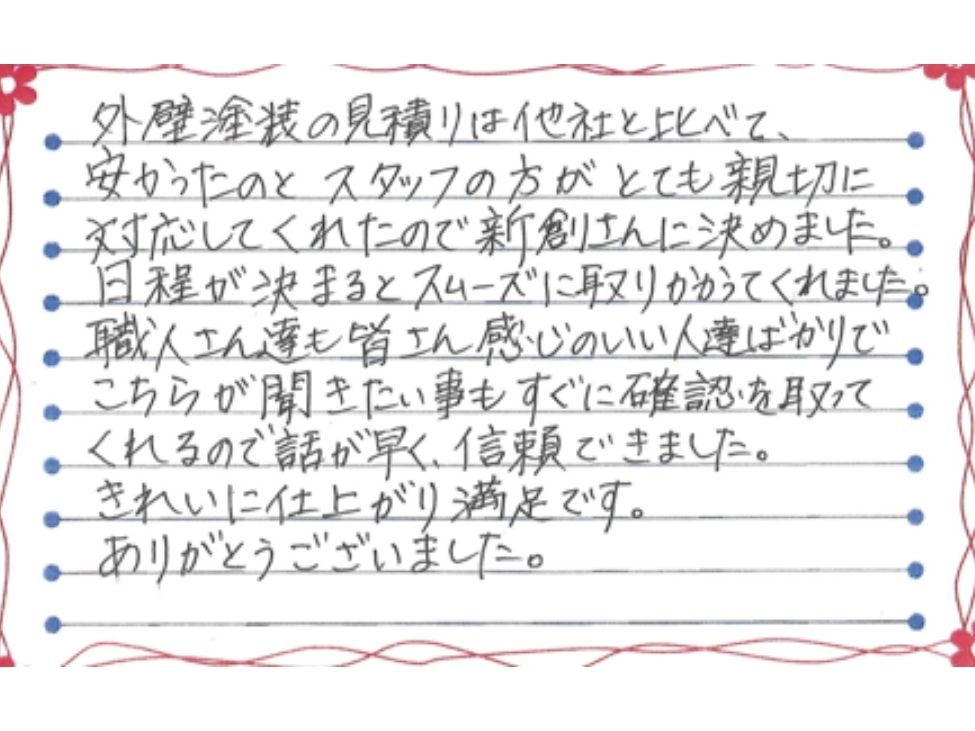 外壁塗装の見積りは他社と比べて、
安かったのと スタッフの方が とても親切に
対応してくれたので新創さんに決めました。
日程が決まるとスムーズに取りかかってくれました。
職人さん達も皆さん感じのいい人達ばかりで
こちらが聞きたい事もすぐに確認を取って
くれるので話が早く、信頼できました。
きれいに仕上がり満足です。
ありがとうございました。